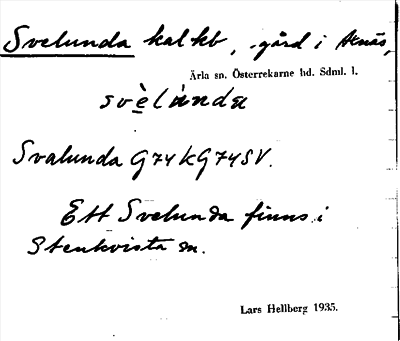 Svelunda kalkb, gård i Åsnäs,
Ärla sn. Österrekarne hd. Sdml. l.
svèlúnda
Svalunda G74K G74SV.
Ett Svelunda finns i
Stenkvista sn.
Lars Hellberg 1935.